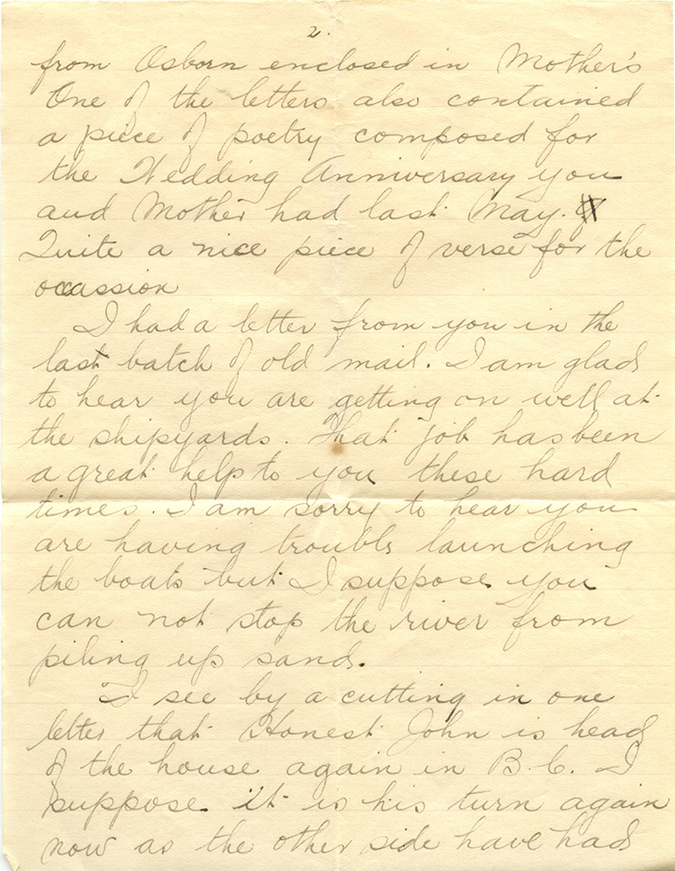 2.
from Osborn enclosed in Mother's
One of the letters also contained
a piece of poetry composed for
the Wedding Anniversary you
and Mother had last May.
Quite a nice piece of verse for the
occassion
I had a letter from you in the
last batch of old mail. I am glad
to hear you are getting on well at
the shipyards. That job has been
a great help to you these hard
times. I am sorry to hear you
are having trouble launching
the boats but I suppose you
can not stop the river from
piling up sand.
I see by a cutting in one
letter that Honest John is head
of the house again in B.C. I
suppose it is his turn again
now as the other side have had